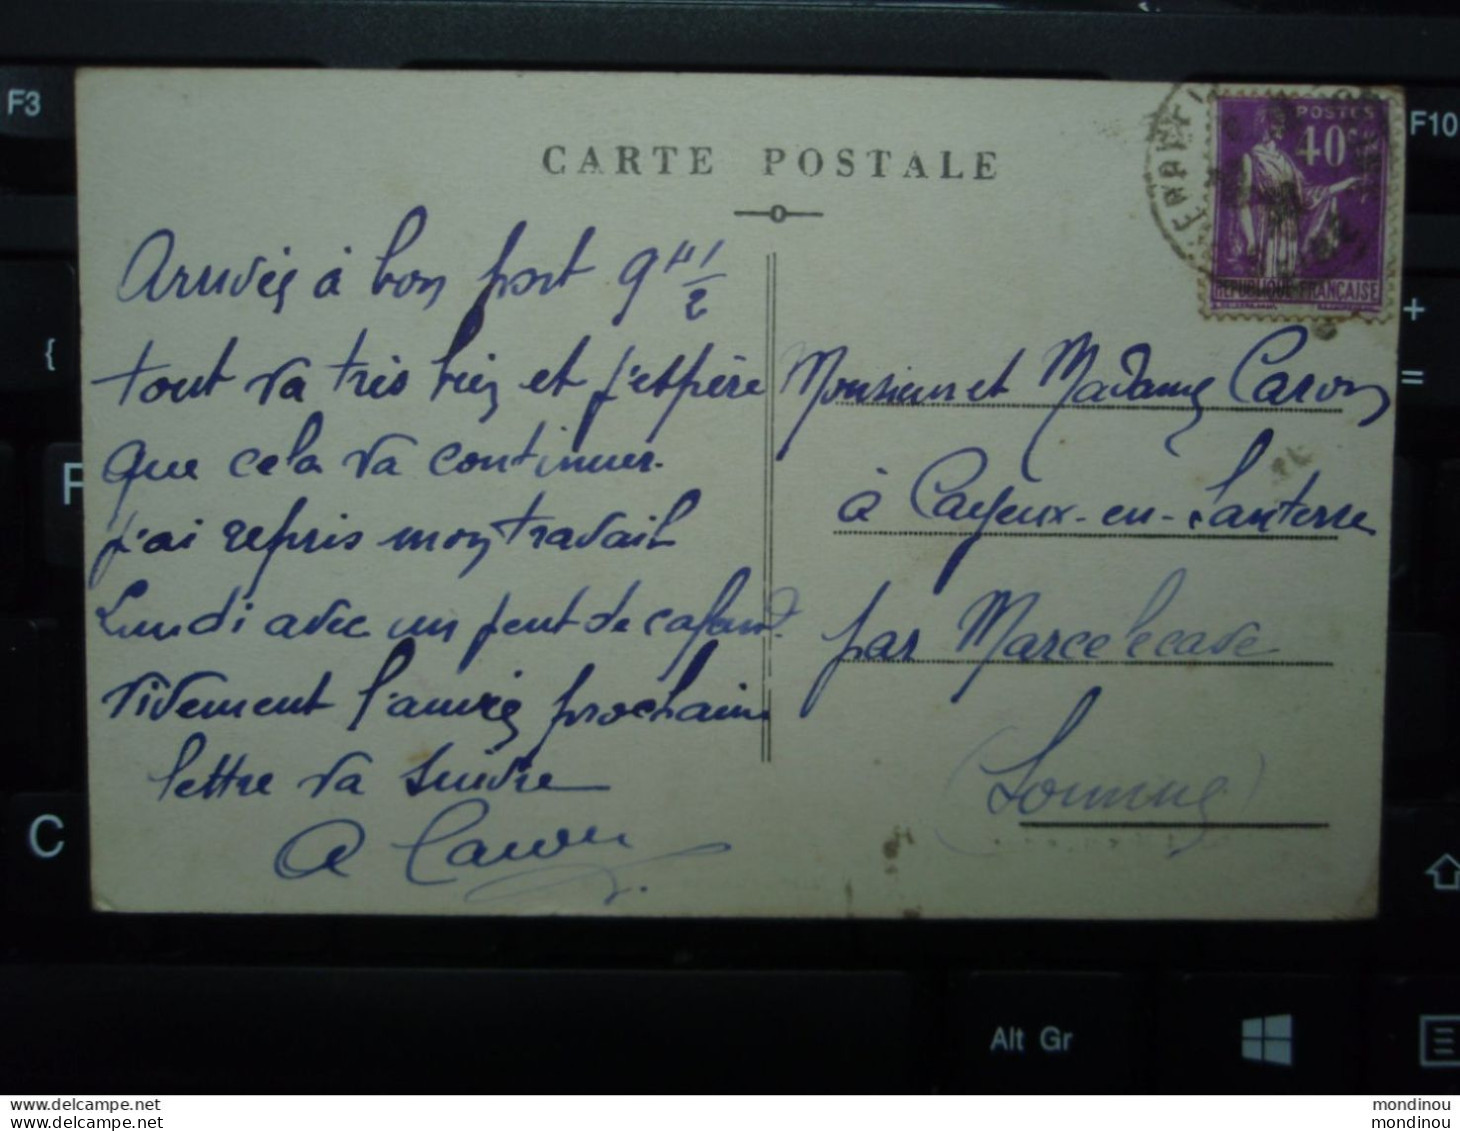 CARTE POSTALE
POSTES
40
REPUBLIQUE FRANÇAISE
Arrivés à bon port 9H 1/2
tout va très bien et j'espère
que cela va continuer.
j'ai repris mon travail
Lundi avec un peut de cafard.
vivement l'année prochaine
lettre va suivre
A Caron
Monsieur et Madame Caron
à Cayeux-en-Santerre
par Marcelcave
(Somme)
F3
F10
{
+
=
C
Alt Gr
mondinou.com
mondinou.com
mondinou
mondinou